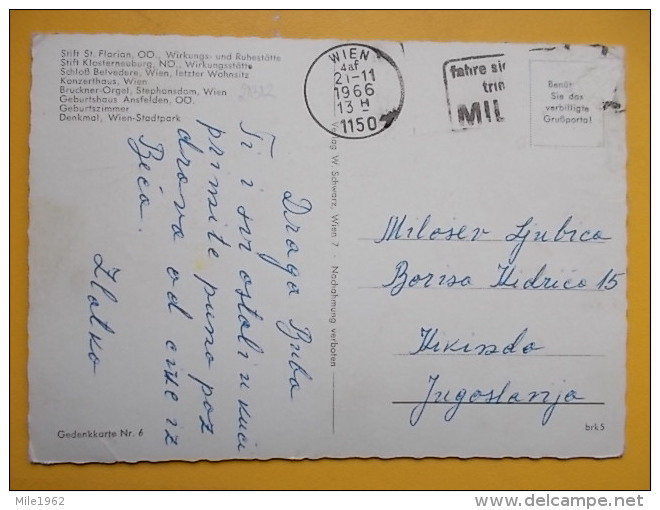 Stift St. Florian, OÖ., Wirkungs- und Ruhestätte
Stift Klosterneuburg, NÖ., Wirkungsstätte
Schloß Belvedere, Wien, letzter Wohnsitz
Konzerthaus, Wien
Bruckner-Orgel, Stephansdom, Wien
Geburtshaus Ansfelden, OÖ.
Geburtszimmer
Denkmal, Wien-Stadtpark
WIEN
21-11
1966
13 H
1150
fahre
trin
MIL
Benüt
Sie das
verbilligte
Grußporto!
Draga Buba
Ti i svi ostali u kući
primite puno poz
drava od čike iz
Beča.
Zlatko
Verlag W. Schwarz, Wien 7 · Nachahmung verboten
Milošev Ljubica
Borisa Kidriča 15
Kikinda
Jugoslavija
Gedenkkarte Nr. 6
brk5
Mile1962